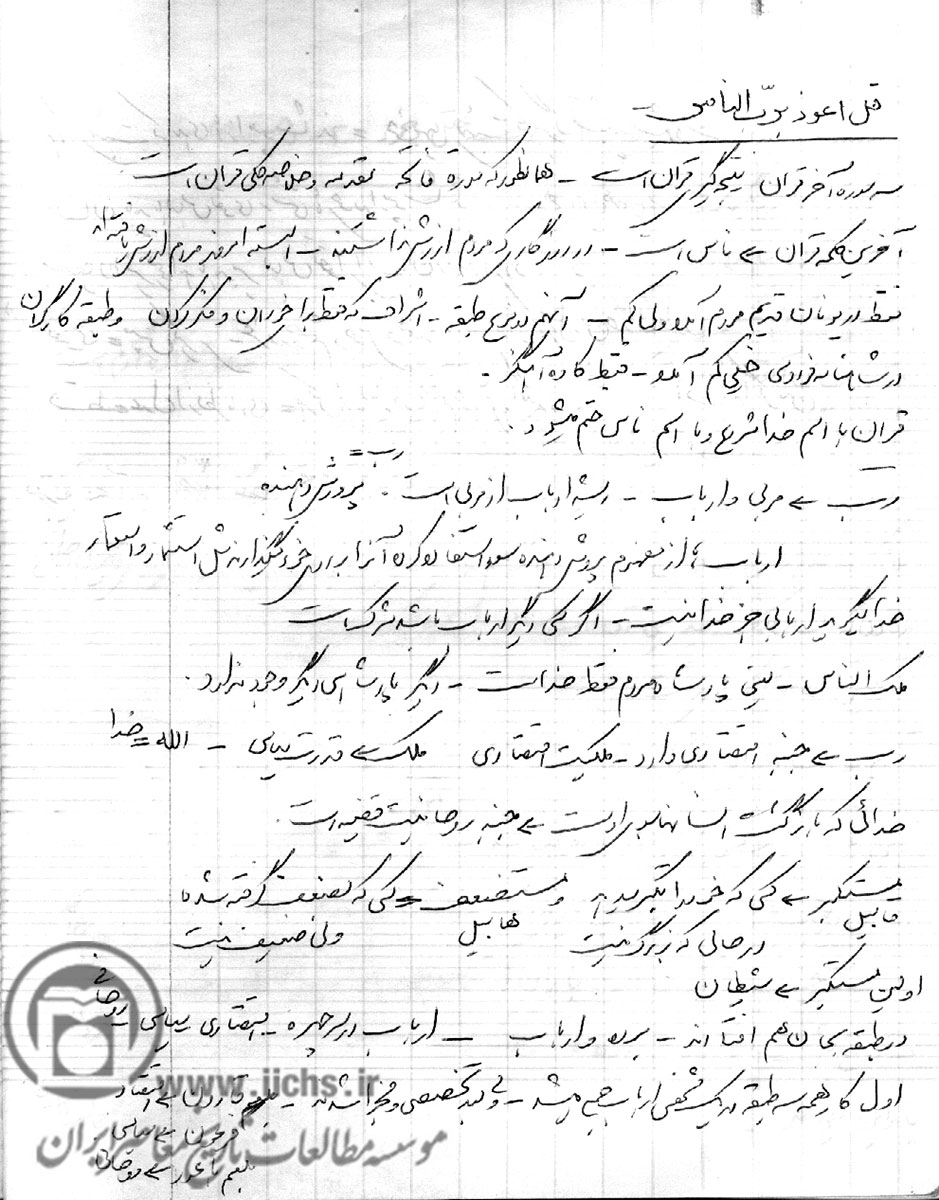 قل اعوذ بربّ الناس –
سه سوره آخر قران نتیجه‌گیری قرآن است – همانطور که سوره فاتحه مقدمه و خلاصه کلی قران است
آخرین کلمه قران ← ناس است – در روزگاری که مردم ارزش نداشتند – البته امروز مردم ارزش یافته‌اند
فقط در یونان قدیم مردم آمده ولی کم – آنهم در نوع طبقه – اشراف که فقط و طبقه کارگران
در شاهنامه فردوسی خیلی کم آمده – فقط کاوه آهنگر .
قران با اسم خدا شروع و با اسم ناس ختم میشود .
رب =
رب ← مربی و ارباب – ریشه ارباب از مربی است . پرورش دهنده
ارباب ، از مفهوم پرورش دهنده سوء استفاده کرده آنرا بر روی خود میگذارند مثل استثمار و استعمار
خدا میگوید اربابی جز خدا نیست – اگر کسی دیگر ارباب باشد شرک است
ملک الناس – یعنی پادشاه مردم فقط خداست – دیگر پادشاهی دیگر وجود ندارد .
رب ← جنبه اقتصادی دارد – ملکیت اقتصادی ملک ← قدرت سیاسی – الله = خدا
خدائی که بازگشت انسانها بسوی اوست ← جنبه روحانیت قضیه است .
مستکبر ← کسی که خود را بزرگ و مستضعف = کسی که ضعیف گرفته شده
قابیل هابیل
در حالی که بزرگ نیست ولی ضعیف نیست
اولین مستکبر ← شیطان
دو طبقه بجان هم افتاده‌اند – برده و ارباب – ارباب در سه چهره – اقتصادی سیاسی – روحانی
اول کار همه سه طبقه در یک شخص ارباب جمع میشد – ولی بعد تخصصی و مجزا شدند – قارون ← اقتصاد
فرعون ← سیاسی
بلعم باعور ← روحانی
www.iichs.ir
موسسه مطالعات تاریخ معاصر ایران